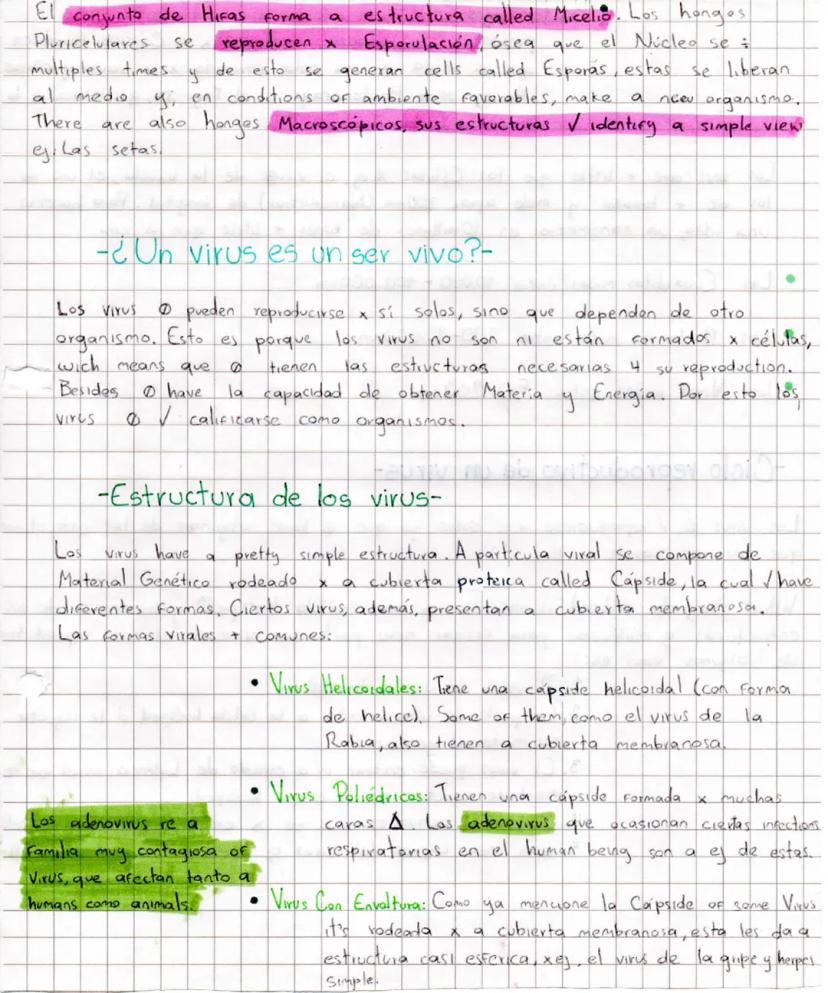 El conjunto de Hifas forma a estructura called Micelio. Los hongos
Pluricelulares se reproducen x Esporulación, ósea que el Núcleo se ÷
multiples times y de esto se generan cells called Esporas, estas se liberan
al medio y, en conditions of ambiente favorables, make a new organismo.
There are also hongos Macroscópicos, sus estructuras √ identify a simple view
ej: Las setas.
-¿Un virus es un ser vivo?-
Los virus Ø pueden reproducirse x sí solos, sino que dependen de otro
organismo. Esto es porque los virus no son ni están formados x células,
wich means que Ø tienen las estructuras necesarias 4 su reproduction.
Besides Ø have la capacidad de obtener Materia y Energía. Por esto los
virus Ø √ calificarse como organismos.
-Estructura de los virus-
Los virus have a pretty simple estructura. A partícula viral se compone de
Material Genético rodeado x a cubierta proteica called Cápside, la cual √ have
diferentes formas. Ciertos virus, además, presentan a cubierta membranosa.
Las formas virales + comunes:
• Virus Helicoidales: Tiene una cápside helicoidal (con forma
de helice). Some of them, como el virus de la
Rabia, also tienen a cubierta membranosa.
• Virus Poliédricos: Tienen una cápside formada x muchas
caras Δ. Los adenovirus que ocasionan ciertas infections
respiratorias en el human being son a ej de estas.
Los adenovirus re a
familia muy contagiosa of
Virus, que afectan tanto a
humans como animals.
• Virus Con Envoltura: Como ya mencione la Cápside of some Virus
it's rodeada x a cubierta membranosa, esta les da a
estructura casi esférica, x ej, el virus de la gripe y herpes
simple.